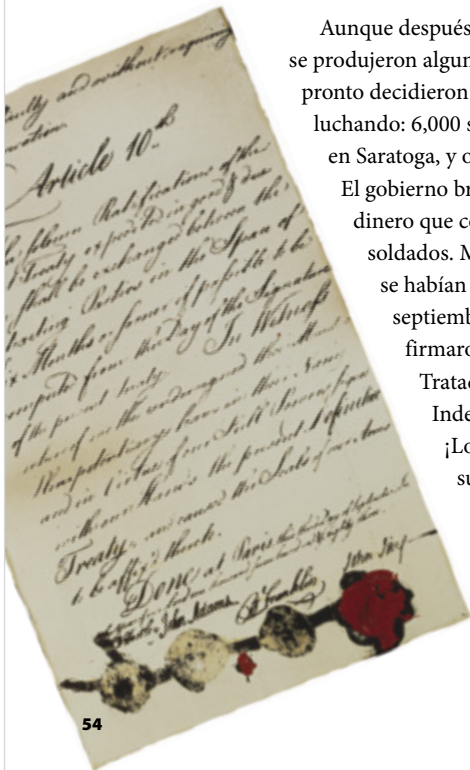 Aunque después
se produjeron algun
pronto decidieron
luchando: 6,000 s
en Saratoga, y o
El gobierno br
dinero que co
soldados. M
se habían
septiemb
firmaro
Tratad
Inde
¡Lo
su
faulty and without requiring
Article 10th
The solemn Ratifications of the
Treaty expedited in good & due
shall be exchanged between the
Parties in the Space of
Six Months or sooner if possible to be
computed from the Day of the Signature
of the present Treaty. In Witness
whereof we the undersigned their
Plenipotentiary have in their Name
and in Virtue of our Full Powers
with our Hands the present Definitive
Treaty, and caused the Seals of our Arms
to be affix'd thereto.
Done at Paris, this third day of September
John Adams B Franklin John Jay
54